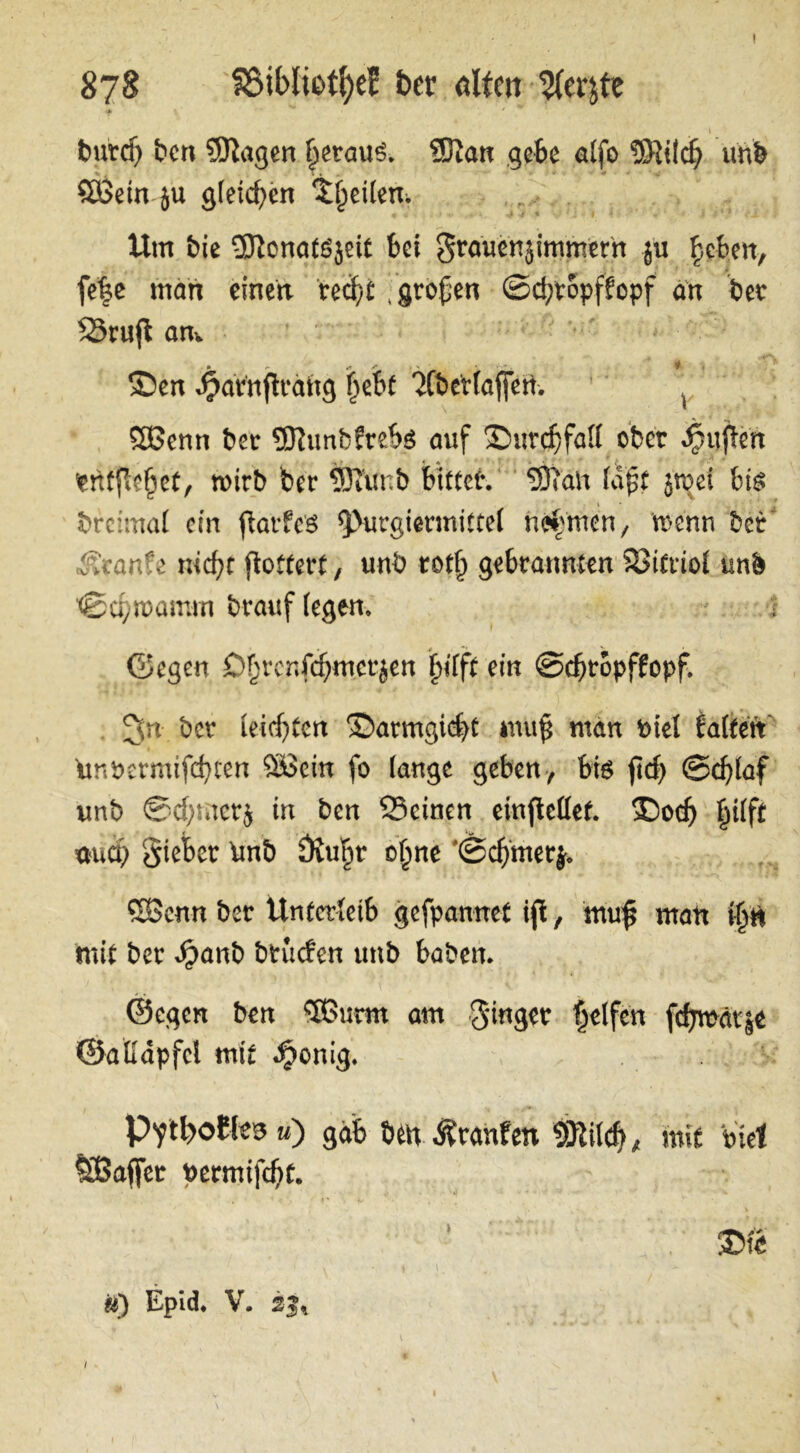 878 Bibliothek der alten Aerzte
durch den Magen heraus. Man gebe also Milch und
Wein zu gleichen Theilen.
Um die Monatszeit bei Frauenzimmern zu heben,
setze man einen recht großen Schröpfkopf an der
Brust an.
Den Harnstrang hebt Aderlassen.
Wenn der Mundkrebs auf Durchfall oder Husten
entstehet, wird der Mund bitter. Man läßt zwei bis
dreimal ein starkes Purgiermittel nehmen, wenn der
Kranke nicht stottert, und roth gebrannten Vitriol und
Schwamm drauf legen.
Gegen Ohrenschmerzen hilft ein Schröpfkopf.
In der leichten Darmgicht muß man viel kalten
unvermischten Wein so lange geben, bis sich Schlaf
und Schmerz in den Beinen einstellet. Doch hilft
auch Fieber und Ruhr ohne Schmerz.
Wenn der Unterleib gespannet ist, muß man ihn
mit der Hand drücken und baden.
Gegen den Wurm am Finger helfen schwarze
Galläpfel mit Honig.
Pythokles u) gab den Kranken Milch, mit viel
Wasser vermischt.
Die
u) Epid. V. 23.